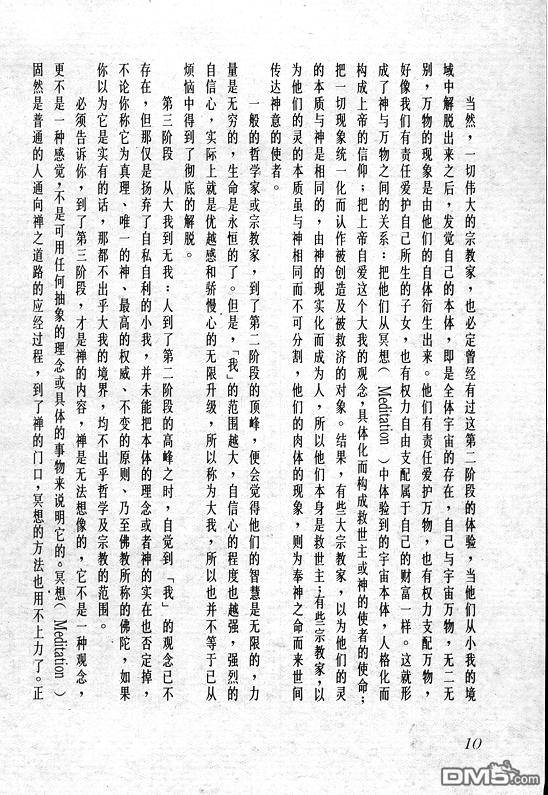 当然，一切伟大的宗教家，也必定曾经有过这第二阶段的体验，当他们从小我的境
域中解脱出来之后，发觉自己的本体，即是全体宇宙的存在，自己与宇宙万物，无二无
别，万物的现象是由他们的自体衍生出来。他们有责任爱护万物，也有权力支配万物，
好像我们有责任爱护自己所生的子女，也有权力自由支配属于自己的财富一样。这就形
成了神与万物之间的关系：把他们从冥想（Meditation）中体验到的宇宙本体，人格化而
构成上帝的信仰；把上帝自爱这个大我的观念，具体化而构成救世主或神的使者的使命；
把一切现象统一化而认作被创造及被救济的对象。结果，有些大宗教家，以为他们的灵
的本质与神是相同的，由神的现实化而成为人，所以他们本身是救世主；有些宗教家，以
为他们的灵的本质虽与神相同而不可分割，他们的肉体的现象，则为奉神之命而来世间
传达神意的使者。
一般的哲学家或宗教家，到了第二阶段的顶峰，便会觉得他们的智慧是无限的，力
量是无穷的，生命是永恒的了。但是，「我」的范围越大，自信心的程度也越强，强烈的
自信心，实际上就是优越感和骄慢心的无限升级，所以称为大我，所以也并不等于已从
烦恼中得到了彻底的解脱。
第三阶段 从大我到无我：人到了第二阶段的高峰之时，自觉到「我」的观念已不
存在，但那仅是扬弃了自私自利的小我，并未能把本体的理念或者神的实在也否定掉，
不论你称它为真理、唯一的神、最高的权威、不变的原则、乃至佛教所称的佛陀，如果
你以为它是实有的话，那都不出乎大我的境界，均不出乎哲学及宗教的范围。
必须告诉你，到了第三阶段，才是禅的内容，禅是无法想像的，它不是一种观念，
更不是一种感觉，不是可用任何抽象的理念或具体的事物来说明它的。冥想（Meditation）
固然是普通的人通向禅之道路的应经过程，到了禅的门口，冥想的方法也用不上力了。正
10
DM5.com